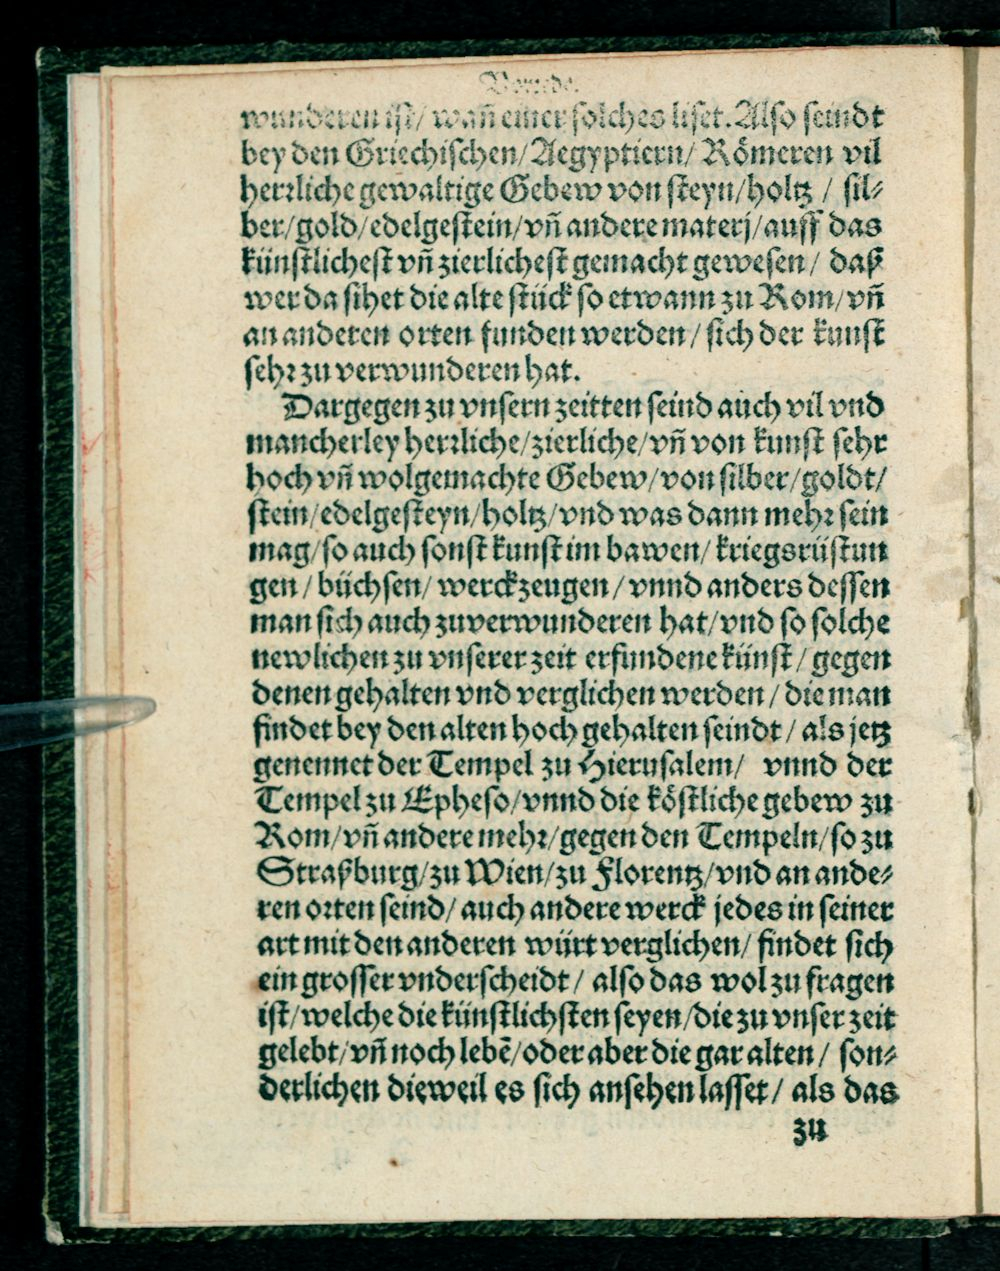 Vorrede.
wunderen ist/ wañ einer solches liset. Also seindt
bey den Griechischen/ Aegyptiern/ Römeren vil
herrliche gewaltige Gebew von steyn/ holtz / sil⸗
ber/ gold/ edelgestein/ vñ andere materj/ auff das
künstlichest vñ zierlichest gemacht gewesen/ daß
wer da sihet die alte stück so etwann zu Rom/ vñ
an anderen orten funden werden/ sich der kunst
sehr zu verwunderen hat.
Dargegen zu vnsern zeitten seind auch vil vnd
mancherley herrliche/ zierliche/ vñ von kunst sehr
hoch vñ wolgemachte Gebew/ von silber/ goldt/
stein/ edelgesteyn/ holtz/ vnd was dann mehr sein
mag/ so auch sonst kunst im bawen/ kriegsrüstun
gen / büchsen/ werckzeugen / vnnd anders dessen
man sich auch zuverwunderen hat/ vnd so solche
newlichen zu vnserer zeit erfundene künst/ gegen
denen gehalten vnd verglichen werden / die man
findet bey den alten hoch gehalten seindt / als jetz
genennet der Tempel zu Hierusalem/ vnnd der
Tempel zu Epheso/ vnnd die köstliche gebew zu
Rom/ vñ andere mehr/ gegen den Tempeln/ so zu
Straßburg/ zu Wien/ zu Florentz/ vnd an ande⸗
ren orten seind/ auch andere werck jedes in seiner
art mit den anderen würt verglichen/ findet sich
ein grosser vnderscheidt / also das wol zu fragen
ist/ welche die künstlichsten seyen/ die zu vnser zeit
gelebt/ vñ noch lebẽ/ oder aber die gar alten / son⸗
derlichen dieweil es sich ansehen lasset/ als das
zu